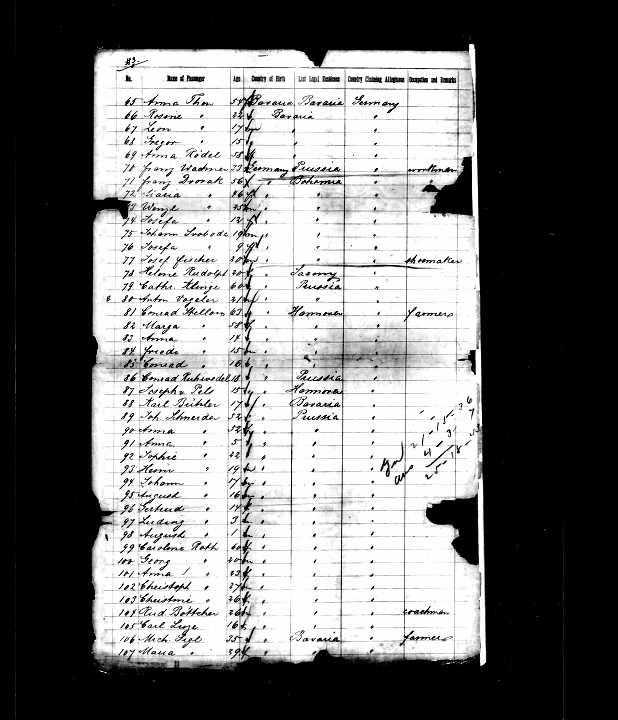 #3
No. Name of Passenger Age Country of Birth Last Legal Residence Country Claiming Allegiance Occupation and Remarks
65 Anna Thon 54 f Bavaria Bavaria Germany
66 Rosine " 22 f Bavaria " "
67 Leon " 17 m " " "
68 Gregor " 15 " " "
69 Anna Rödel 58 f " " "
70 Franz Wadmer 33 Germany Prussia " workman
71 Franz Dvorak 56 " Bohemia "
72 Maria " 26 f " " "
73 Wenzl " 25 m " " "
74 Josefa " 12 f " " "
75 Johann Svoboda 19 m " " "
76 Josefa " 9 f " " "
77 Josef Fischer 20 m " " " shoemaker
78 Helene Rudolph 20 f " Saxony "
79 Cathr. Klinge 60 f " Prussia "
80 Anton Vogeler 21 m " " "
81 Conrad 63 " Hannover " farmers
82 Marga " 58 f " " "
83 Anna " 14 " " "
84 Frieda " 15 " " "
85 Conrad " 16 " " "
86 Conrad 18 " Prussia "
87 Joseph v. Pelz 15 " Hannover "
88 Karl Bühler 17 " Bavaria "
89 Joh. Schneider 52 " Prussia "
90 Anna " 52 f " " "
91 Anna " 5 " " "
92 Sophie " 22 " " "
93 Henri " 19 " " "
94 Johann " 17 " " "
95 August " 16 " " "
96 Gertrud " 14 " " "
97 Ludwig " 3 " " "
98 August " 1 " " "
99 Caroline Roth 60 f " " "
100 Georg " 20 m " " "
101 Anna " 23 f " " "
102 Christoph " 27 m " " "
103 Christine " 26 f " " "
104 Rud Böttcher 26 m " " " coachman
105 Carl 16 " " "
106 Mich. Sigl 35 " Bavaria " farmers
107 Maria " 29 f " " "
21 - 15 - 36
4 - 3 - 7
25 - 18 - 43